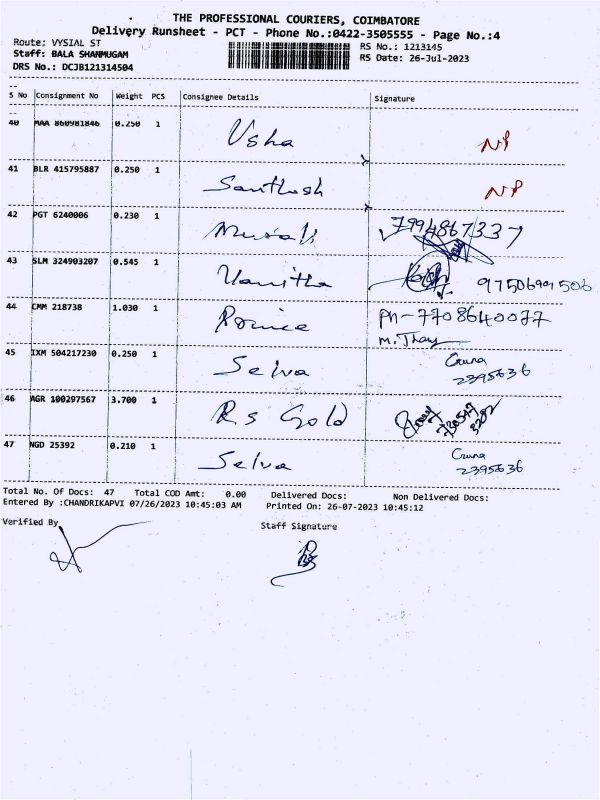 THE PROFESSIONAL COURIERS, COIMBATORE
Delivery Runsheet - PCT - Phone No.:0422-3505555 - Page No.:4
Route: VYSIAL ST
RS No.: 1213145
Staff: BALA SHANMUGAM
RS Date: 26-Jul-2023
DRS No.: DCJB121314504
S No Consignment No Weight PCS Consignee Details Signature
40 MAA 860981846 0.250 1 Usha NP
41 BLR 415795887 0.250 1 Santhosh NP
42 PGT 6240006 0.230 1 Murali 7994867337
43 SLM 324903207 0.545 1 Vanitha
44 CMM 218738 1.030 1 Ph-7708640077
M. Thay
45 IXM 504217230 0.250 1 Selva
2395636
46 AGR 100297567 3.700 1 R.s Gold
47 NGD 25392 0.210 1 Selva
2395636
Total No. Of Docs: 47 Total COD Amt: 0.00 Delivered Docs: Non Delivered Docs:
Entered By :CHANDRIKAPVI 07/26/2023 10:45:03 AM Printed On: 26-07-2023 10:45:12
Verified By
Staff Signature